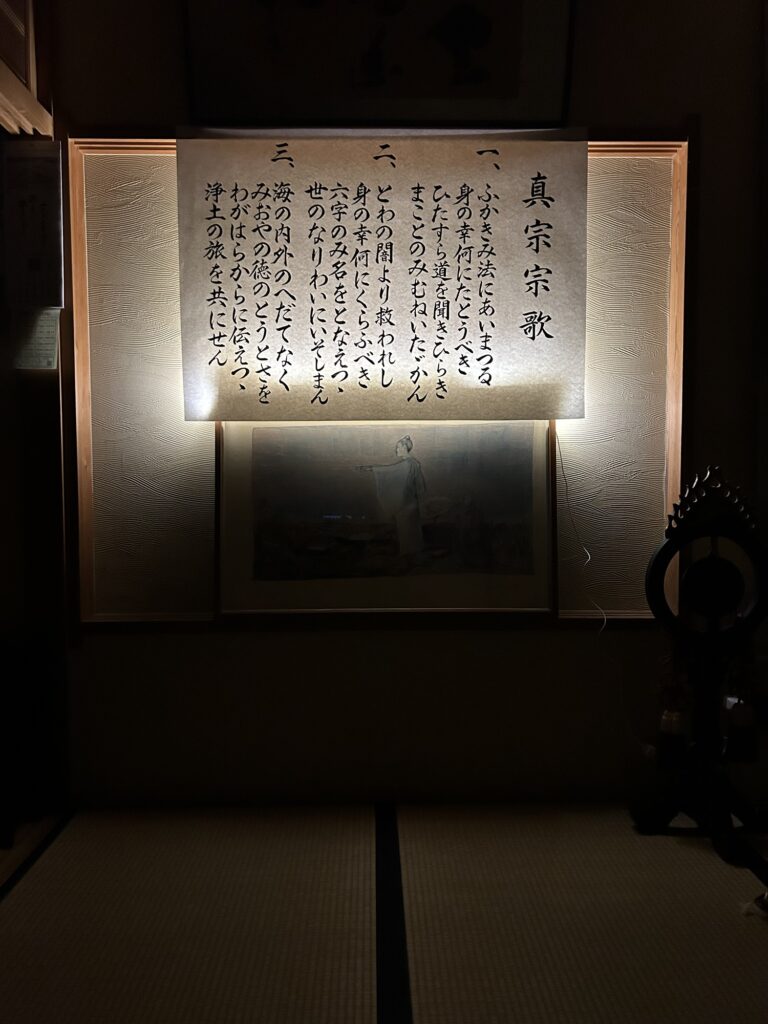 真宗宗歌
一、
ふかきみ法にあいまつる
身の幸何にたとうべき
ひたすら道を聞きひらき
まことのみむねいたゞかん
二、
とわの闇より救われし
身の幸何にくらふべき
六字のみ名をとなえつゝ
世のなりわいにいそしまん
三、
海の内外のへだてなく
みおやの徳のとうとさを
わがはらからに伝えつゝ
浄土の旅を共にせん